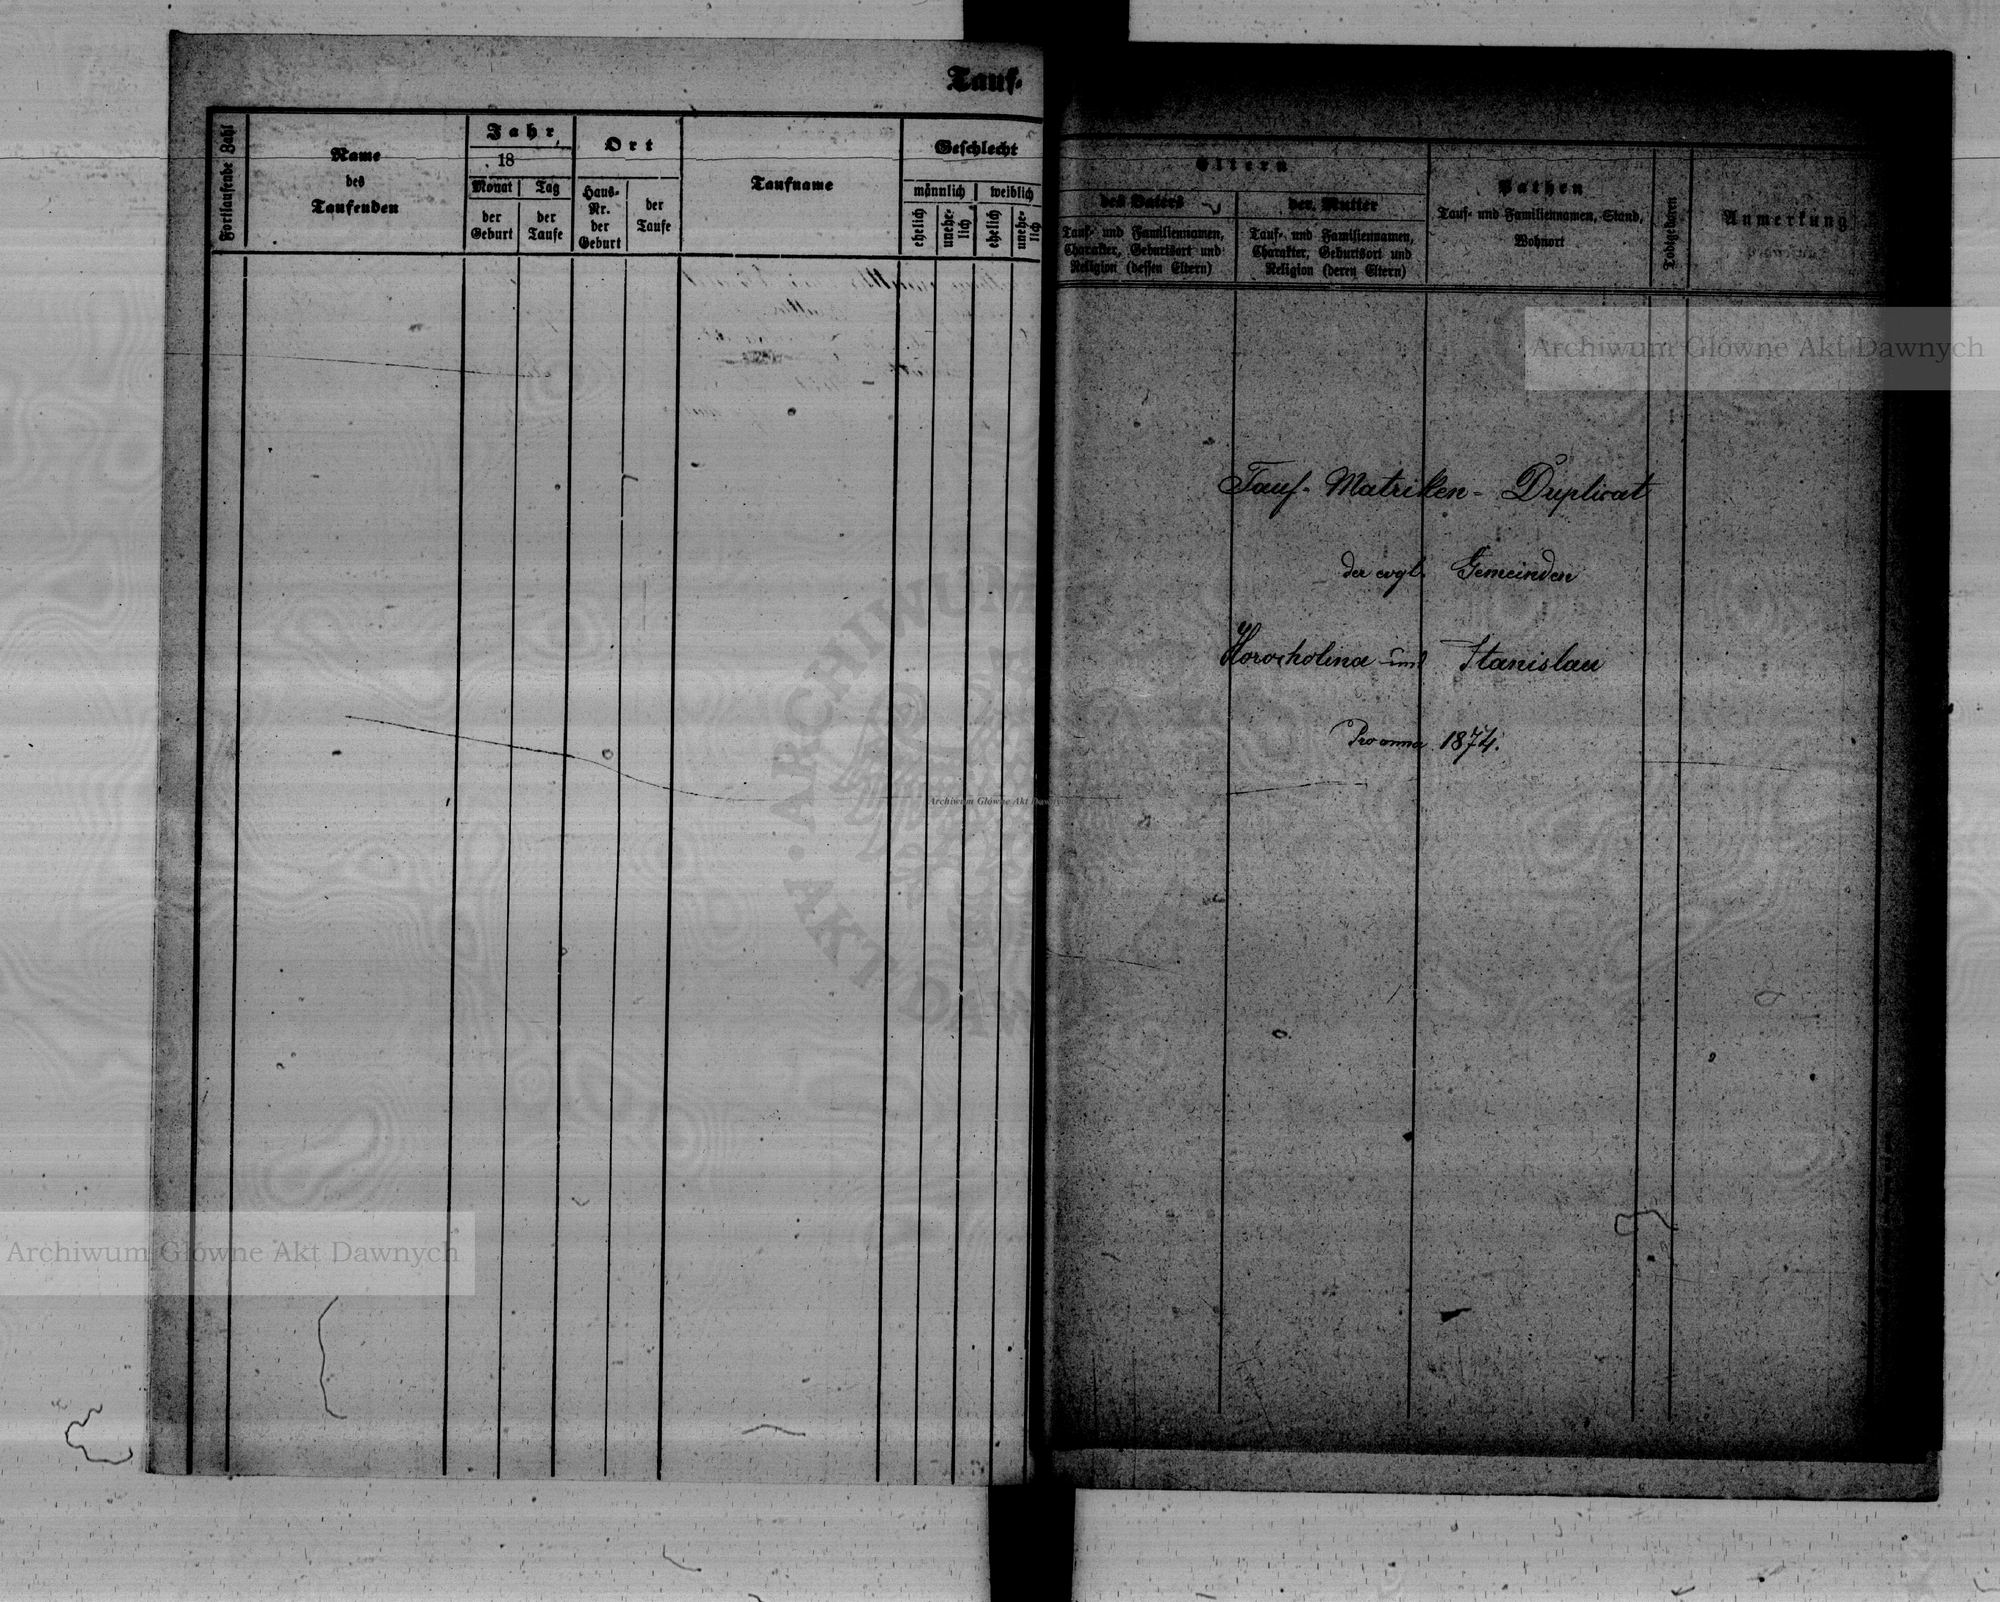 Tauf-
Fortlaufende Zahl
Name
des
Taufenden
Jahr
18
Monat
Tag
der
Geburt
der
Taufe
Ort
Haus-
Nr.
der
Geburt
der
Taufe
Taufname
Geschlecht
männlich
weiblich
ehelich
unehe-
lich
ehelich
unehe-
lich
Eltern
des Vaters
Tauf- und Familiennamen,
Charakter, Geburtsort und
Religion (dessen Eltern)
der Mutter
Tauf- und Familiennamen,
Charakter, Geburtsort und
Religion (deren Eltern)
Pathen
Tauf- und Familiennamen, Stand,
Wohnort
Todtgeboren
Anmerkung
Tauf-Matriken-Duplicat
der evgl. Gemeinden
Horocholina und Stanislau
Pro anno 1874.
Archiwum Główne Akt Dawnych
Archiwum Główne Akt Dawnych
Archiwum Główne Akt Dawnych